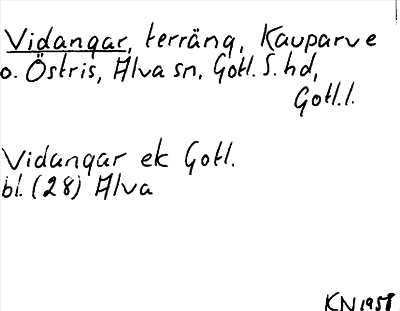 Vidangar, terräng, Kauparve
o. Östris, Alva sn, Gotl. S. hd,
Gotl.l.
Vidangar ek Gotl.
bl. (28) Alva
KN 1958